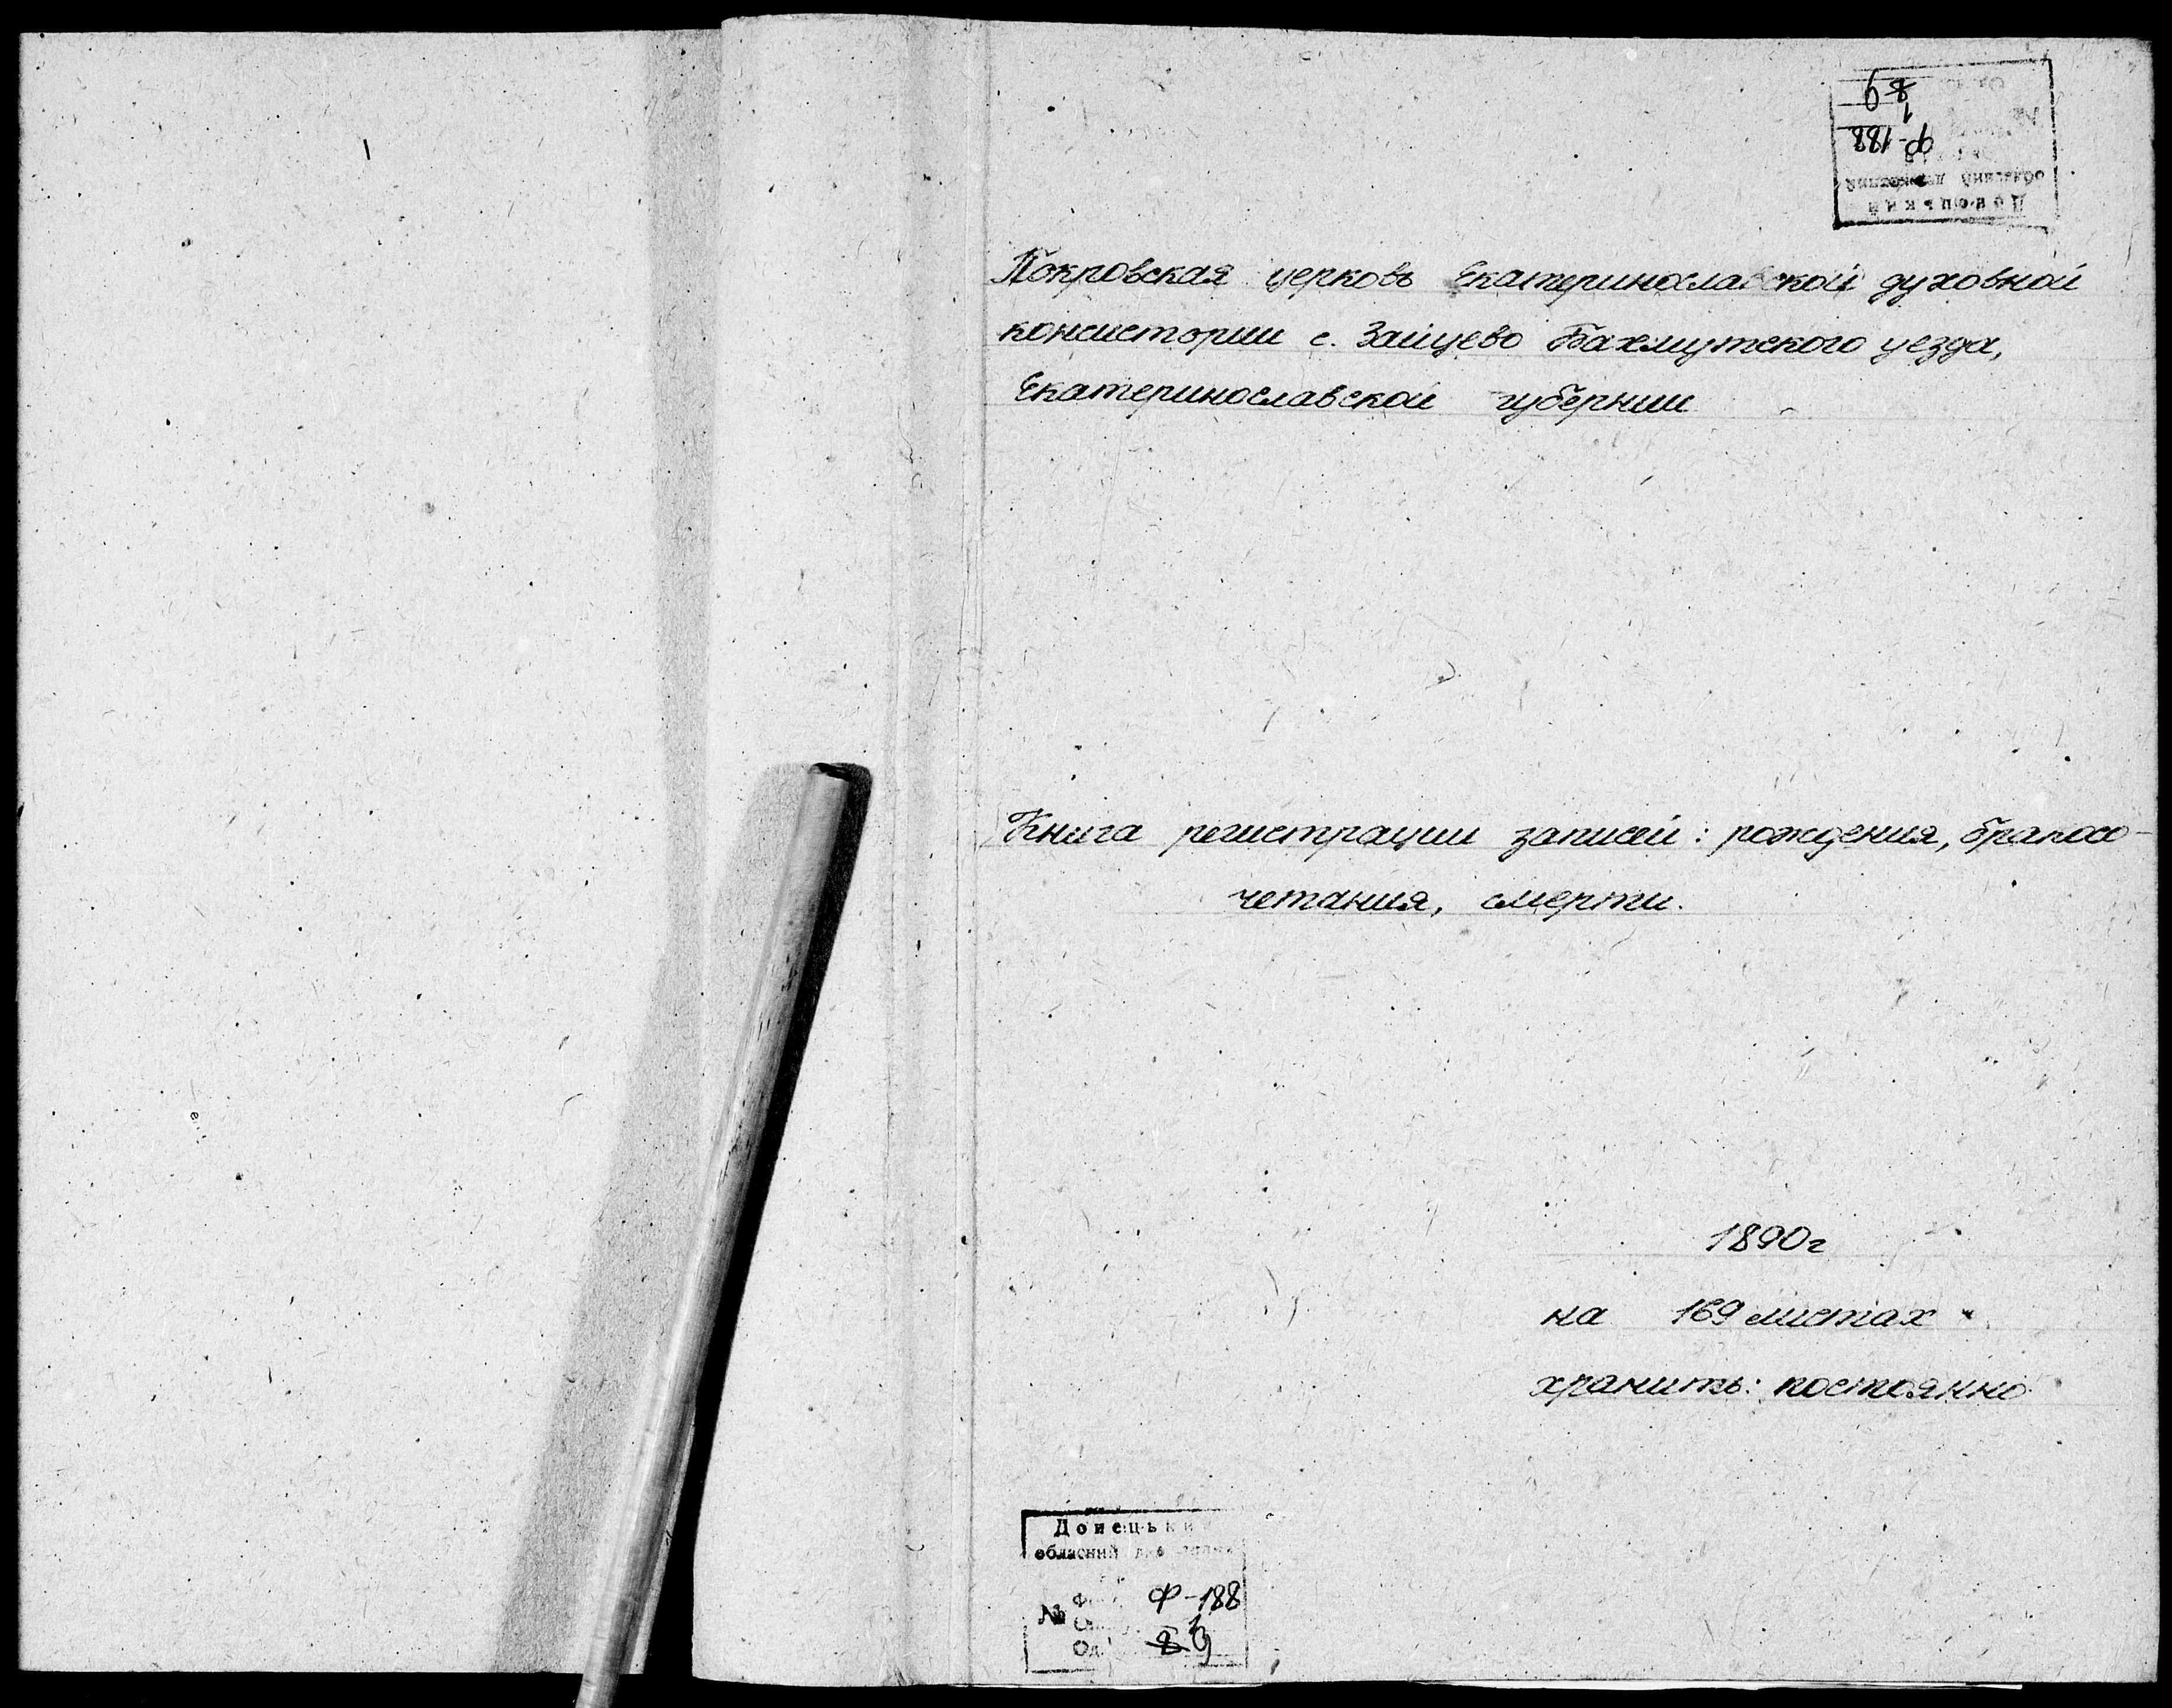 Ф-188
1
8 9
обласний державний
Донецький
Покровская церковь Екатеринославской духовной
консистории с. Зайцево Бахмутского уезда,
Екатеринославской губернии
Книга регистрации записей: рождения, бракосо-
четания, смерти.
1890г
на 169 листах
хранить: постоянно
Донецький
обласний
Ф-188
№ 1
Од. 8 9